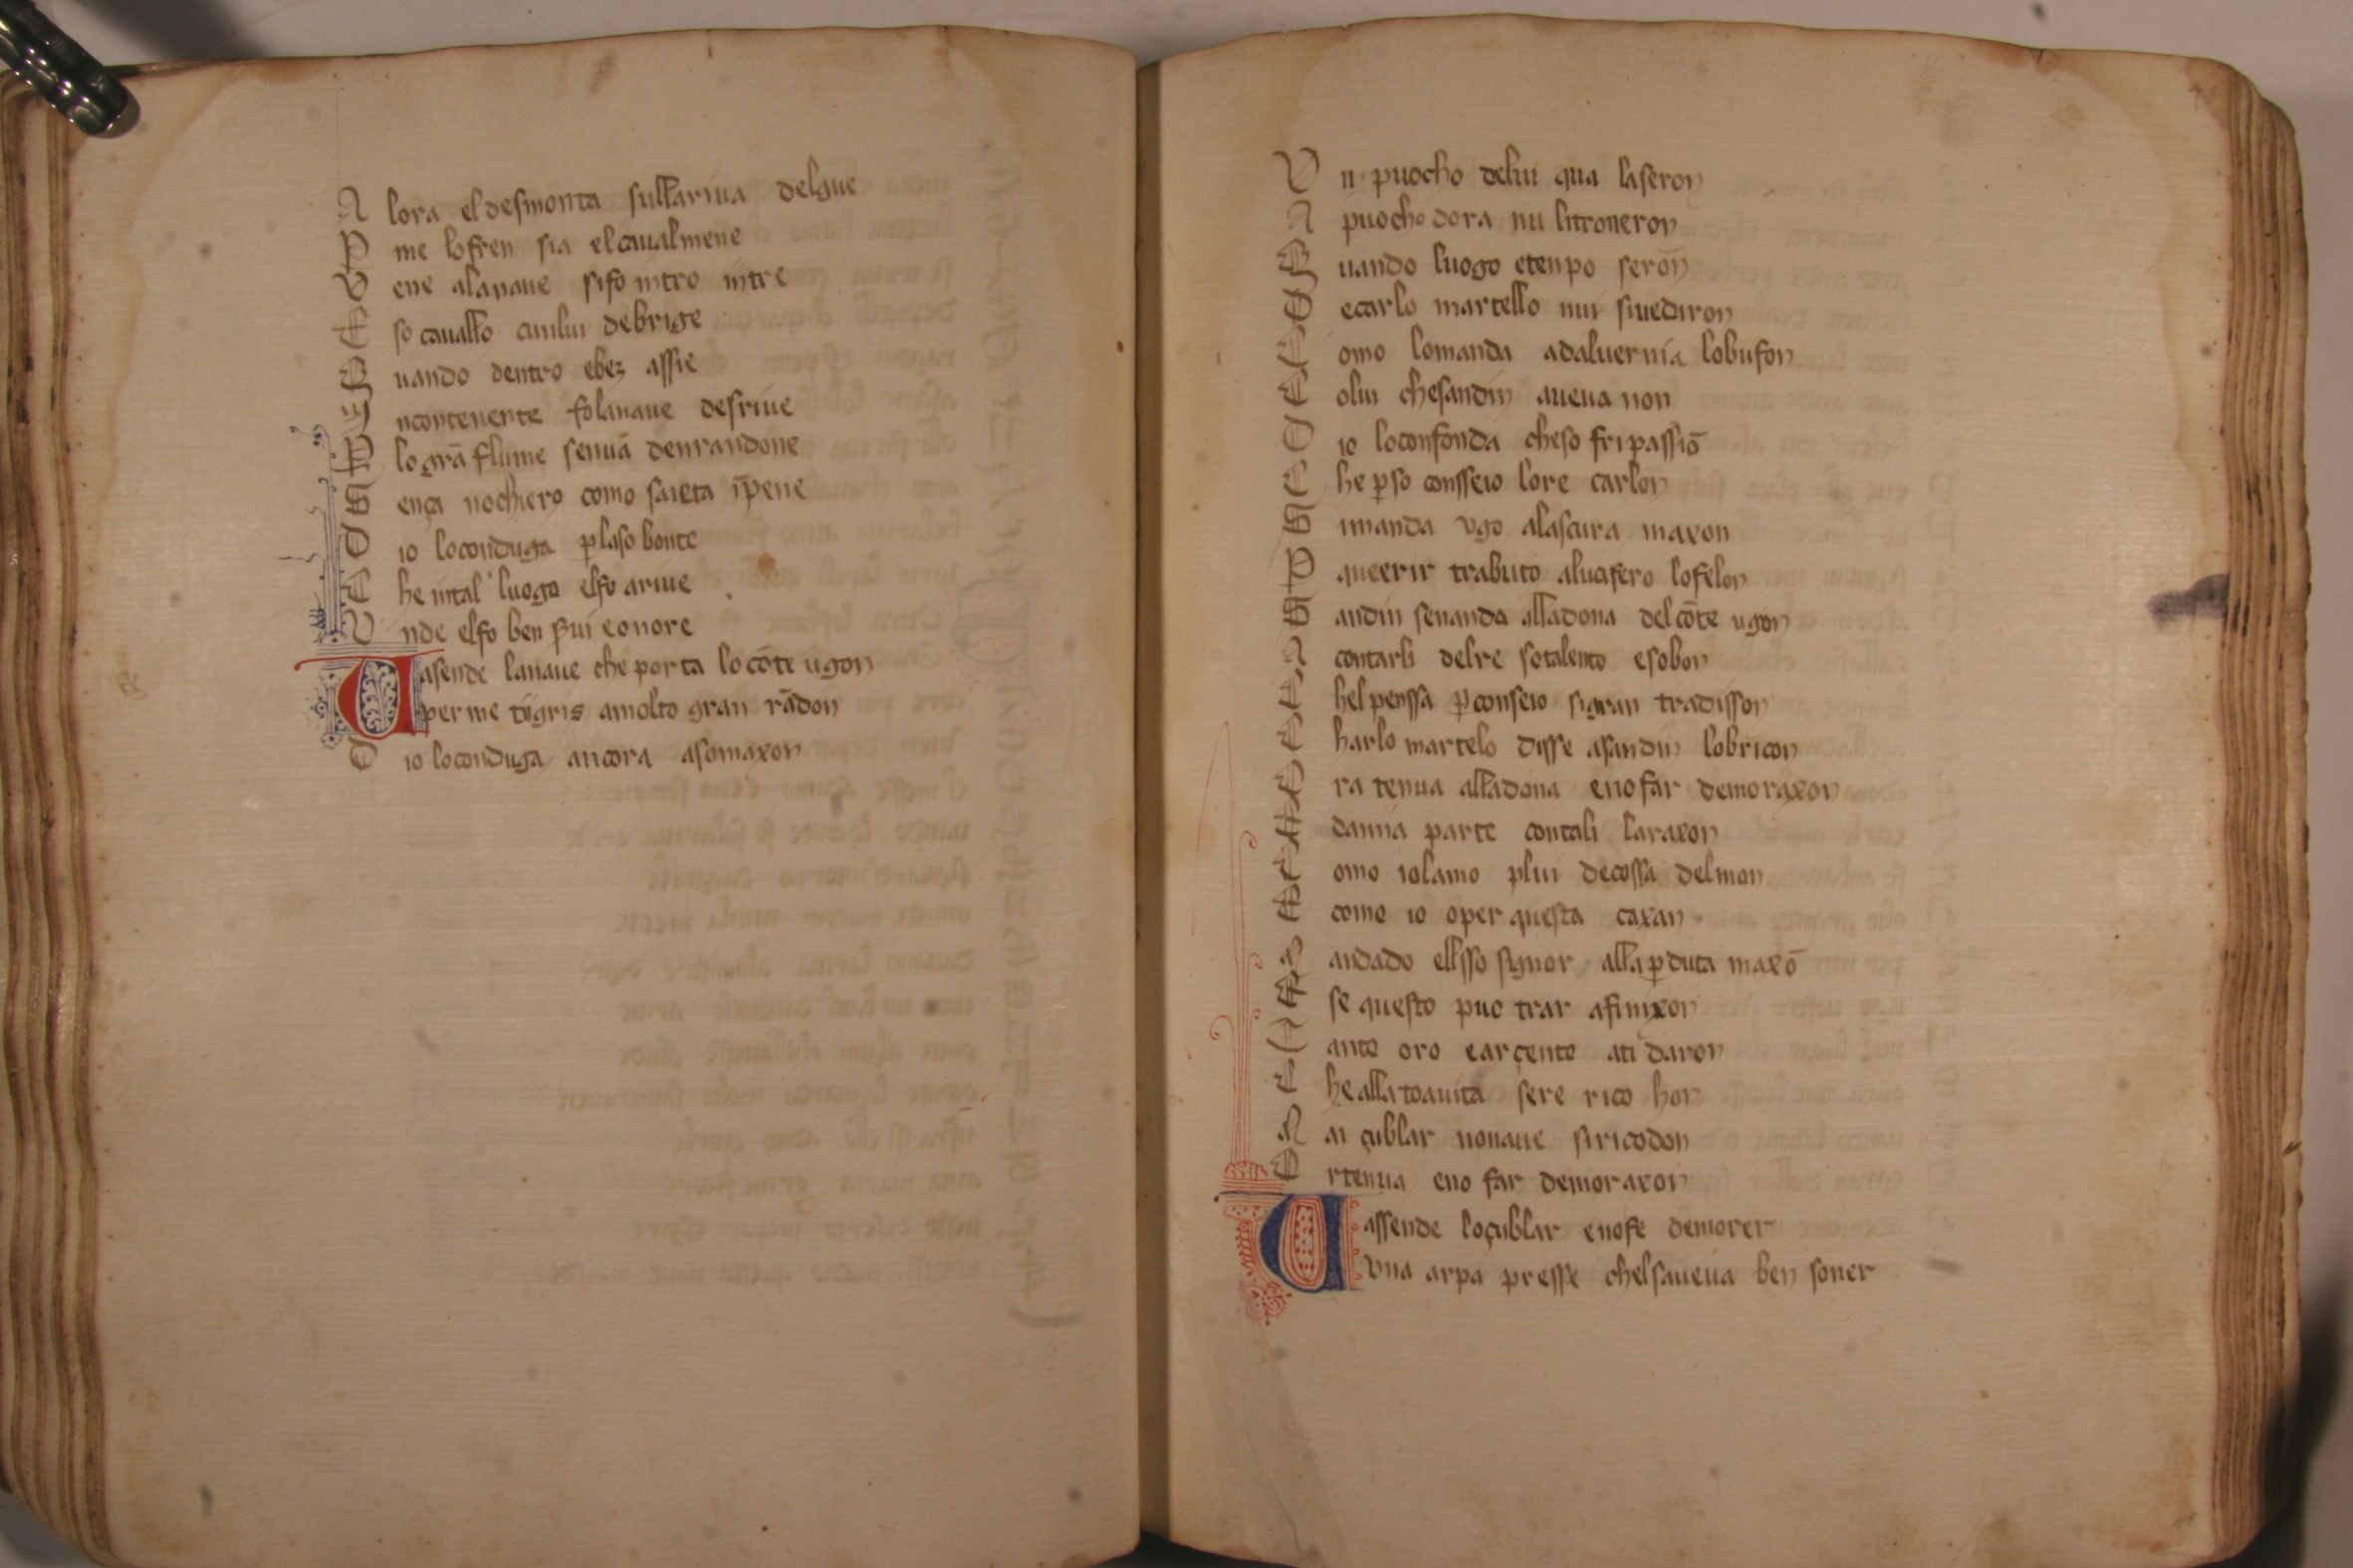 A lora el desmonta sullariua delgue
P me lofren sia el caual mene
V ene alanaue sifo intro intre
E so cauallo cunlui debrige
Q uando dentro ebeʒ assie
I ncontenente folanaue desriue
P lo grã flume senuã denrandone
S ença nochiero como saieta ĩpene
D io loconduga ꝑlaso bonte
C he intal luogo elfo ariue
V nde elfo ben s̃ui eonore
V asende lanaue che porta lo cõte ugon
per me tigris amolto gran rãdon
D io loconduga ancora asomaxon
V n puocho delui qua laseron
A puocho dora nu litroneron
Q uando luogo etenpo serõn
D ecarlo martello nui siuediron
C omo lomanda adaluernia lobufon
C olui chesandin aueua non
D io loconfonda cheso fri passiõ
C he ꝑso consseio lore carlon
S imanda vgo alascura maxon
P querir trabuto alucifero lofelon
S andin senanda alladona del cõte ugon
A contarli delre sotalento esobon
C hel penssa ꝑconseio sigran tradisson
C harlo martelo disse asandin lobricon
O ra tenua alladona eno far demoraxon
E damia parte contali laraxon
C omo iolamo plui decossa delmon
E como io oper questa caxan
M andado ellsso signor alla ꝑduta maxõ
E se questo puo trar afinixon
T anto oro earçento ati daron
C he alla toauita sere rico hon
M ai çublar nonaue siricodon
O rtenua eno far demoraxon
V assende loçublar enofe demorer
vna arpa presse chelsaueua ben soner